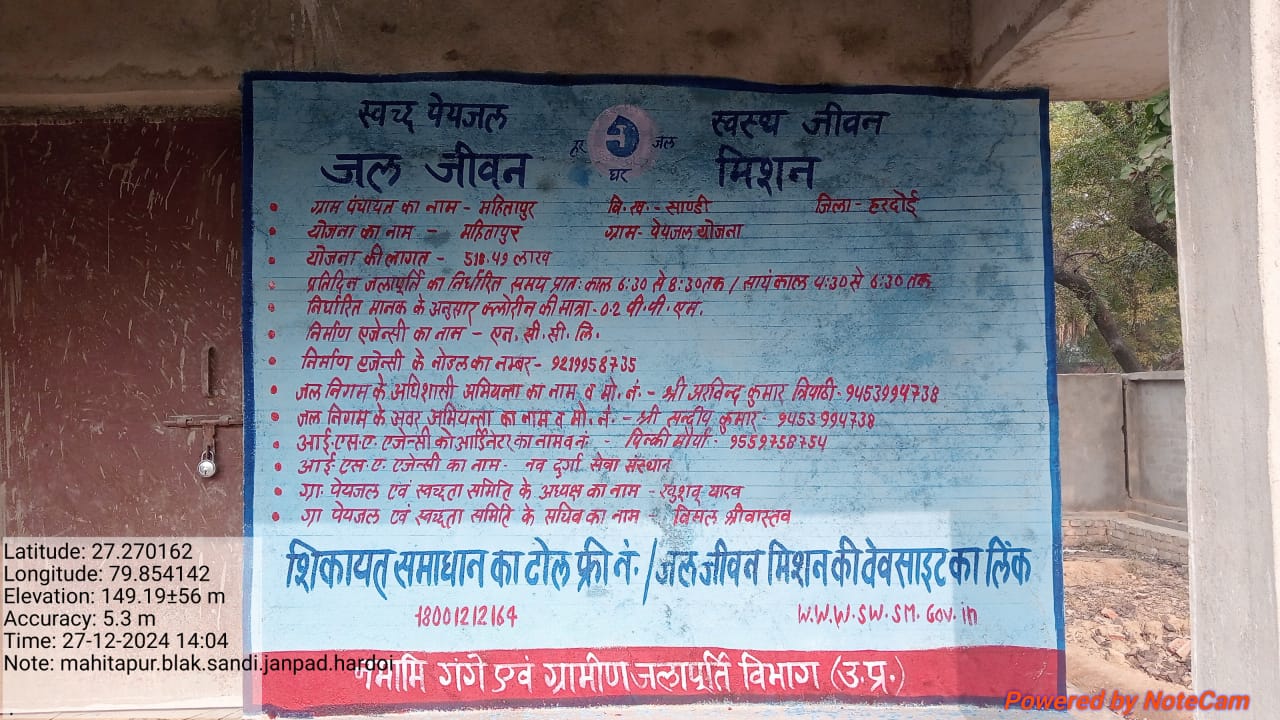 स्वच्छ पेयजल स्वस्थ जीवन
हर घर जल
जल जीवन मिशन
ग्राम पंचायत का नाम - महितापुर वि.ख.- साण्डी जिला- हरदोई
योजना का नाम - महितापुर ग्राम- पेयजल योजना
योजना की लागत - 518.49 लाख
प्रतिदिन जलापूर्ति का निर्धारित समय प्रातः काल 6:30 से 8:30 तक / सायं काल 4:30 से 6:30 तक
निर्धारित मानक के अनुसार क्लोरीन की मात्रा - 0.2 पी.पी.एम.
निर्माण एजेन्सी का नाम - एन.सी.सी.लि.
निर्माण एजेन्सी के नोडल का नम्बर- 9219958735
जल निगम के अधिशासी अभियन्ता का नाम व मो.नं.- श्री अरविन्द कुमार त्रिपाठी- 9453994738
जल निगम के अवर अभियन्ता का नाम व मो.नं.- श्री सन्दीप कुमार- 9453994738
आई.एस.ए. एजेन्सी को आर्डिनेटर का नाम व नं. - पिन्की मौर्या- 9559758754
आई.एस.ए. एजेन्सी का नाम- नव दुर्गा सेवा संस्थान
ग्रा. पेयजल एवं स्वच्छता समिति के अध्यक्ष का नाम - खुशबू यादव
ग्रा. पेयजल एवं स्वच्छता समिति के सचिव का नाम - विमल श्रीवास्तव
शिकायत समाधान का टोल फ्री नं. / जल जीवन मिशन की वेवसाइट का लिंक
18001212164 W.W.W.SW.SM.Gov.in
नमामि गंगे एवं ग्रामीण जलापूर्ति विभाग (उ.प्र.)
Latitude: 27.270162
Longitude: 79.854142
Elevation: 149.19±56 m
Accuracy: 5.3 m
Time: 27-12-2024 14:04
Note: mahitapur.blak.sandi.janpad.hardoi
Powered by NoteCam